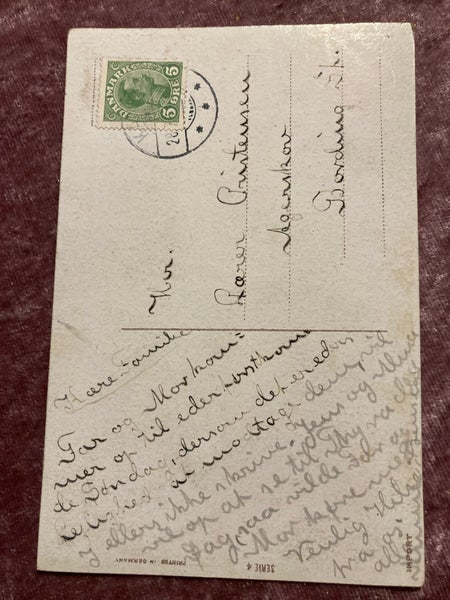 DANMARK
5 ØRE 5
Hr.
Lærer Cristensen
Agerskov
Bording St.
Kære Familie
Far og Mor kom-
mer op til eder førstkom
de Søndag, dersom det er eders
lejlighed at modtage dem, vil
I ellers ikke skrive. Jens og
vil op at se til Thyra
Dag, saa vilde Far og
Mor køre med
Venlig Hilsen
fra os
alle.
PRINTED IN GERMANY
SERIE 4
IMPORT